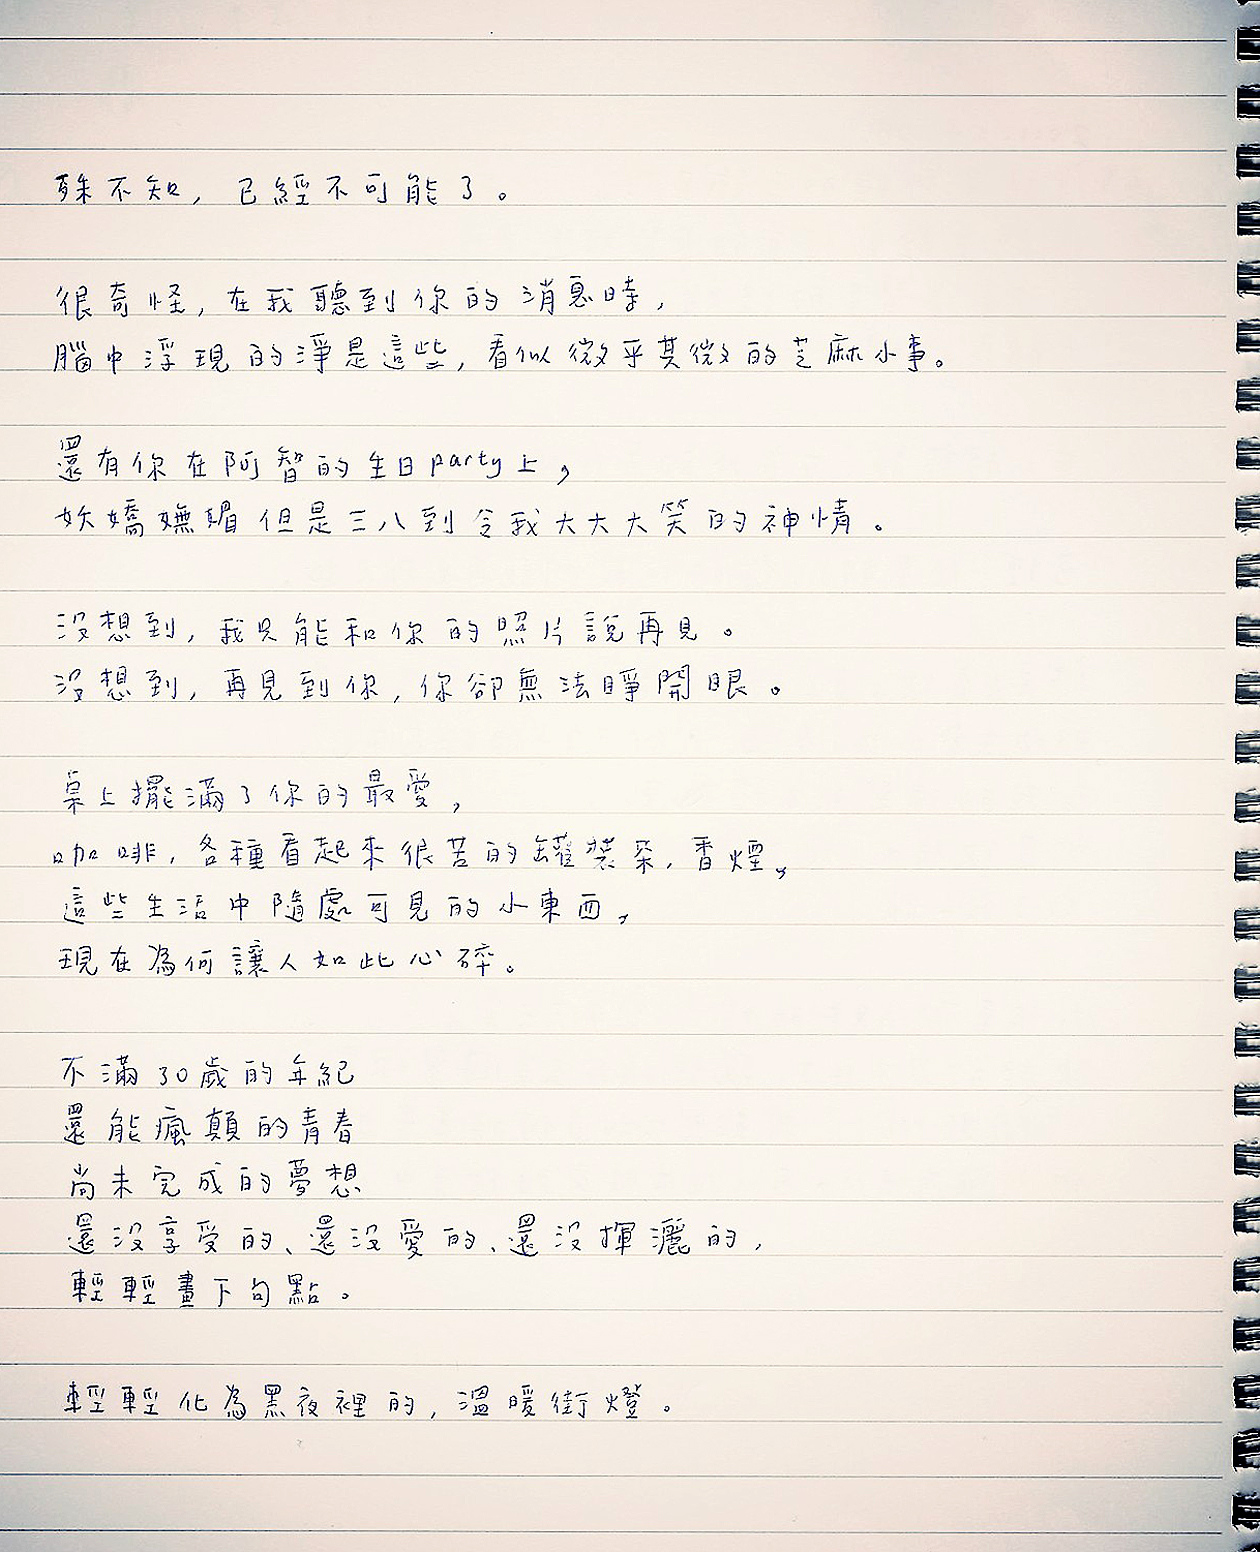 殊不知，已經不可能了。
很奇怪，在我聽到你的消息時，
腦中浮現的淨是這些，看似微乎其微的芝麻小事。
還有你在阿智的生日party上，
妖嬌嫵媚但是三八到令我大大大笑的神情。
沒想到，我只能和你的照片說再見。
沒想到，再見到你，你卻無法睜開眼。
桌上擺滿了你的最愛，
咖啡，各種看起來很苦的罐裝茶，香煙，
這些生活中隨處可見的小東西，
現在為何讓人如此心碎。
不滿30歲的年紀
還能瘋顛的青春
尚未完成的夢想
還沒享受的、還沒愛的、還沒揮灑的，
輕輕畫下句點。
輕輕化為黑夜裡的，溫暖街燈。